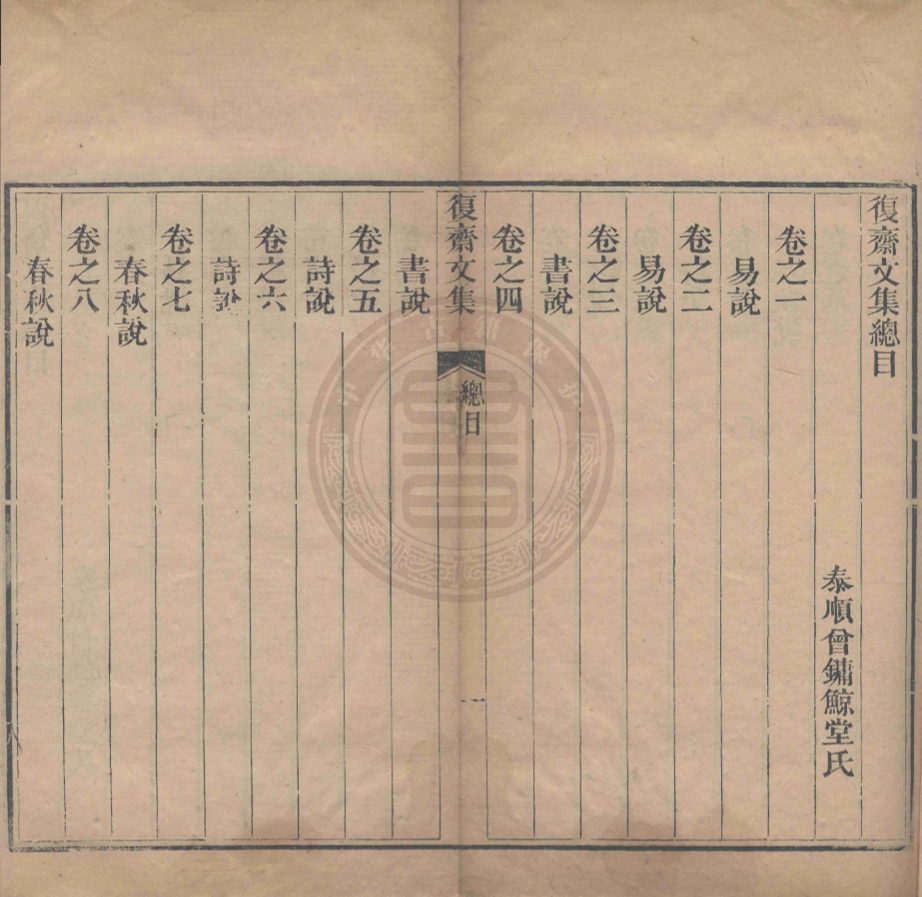 復齋文集總目
泰順曾鏞鯨堂氏
卷之一
易說
卷之二
易說
卷之三
書說
卷之四
復齋文集
總目
一
書說
卷之五
詩說
卷之六
詩說
卷之七
春秋說
卷之八
春秋說